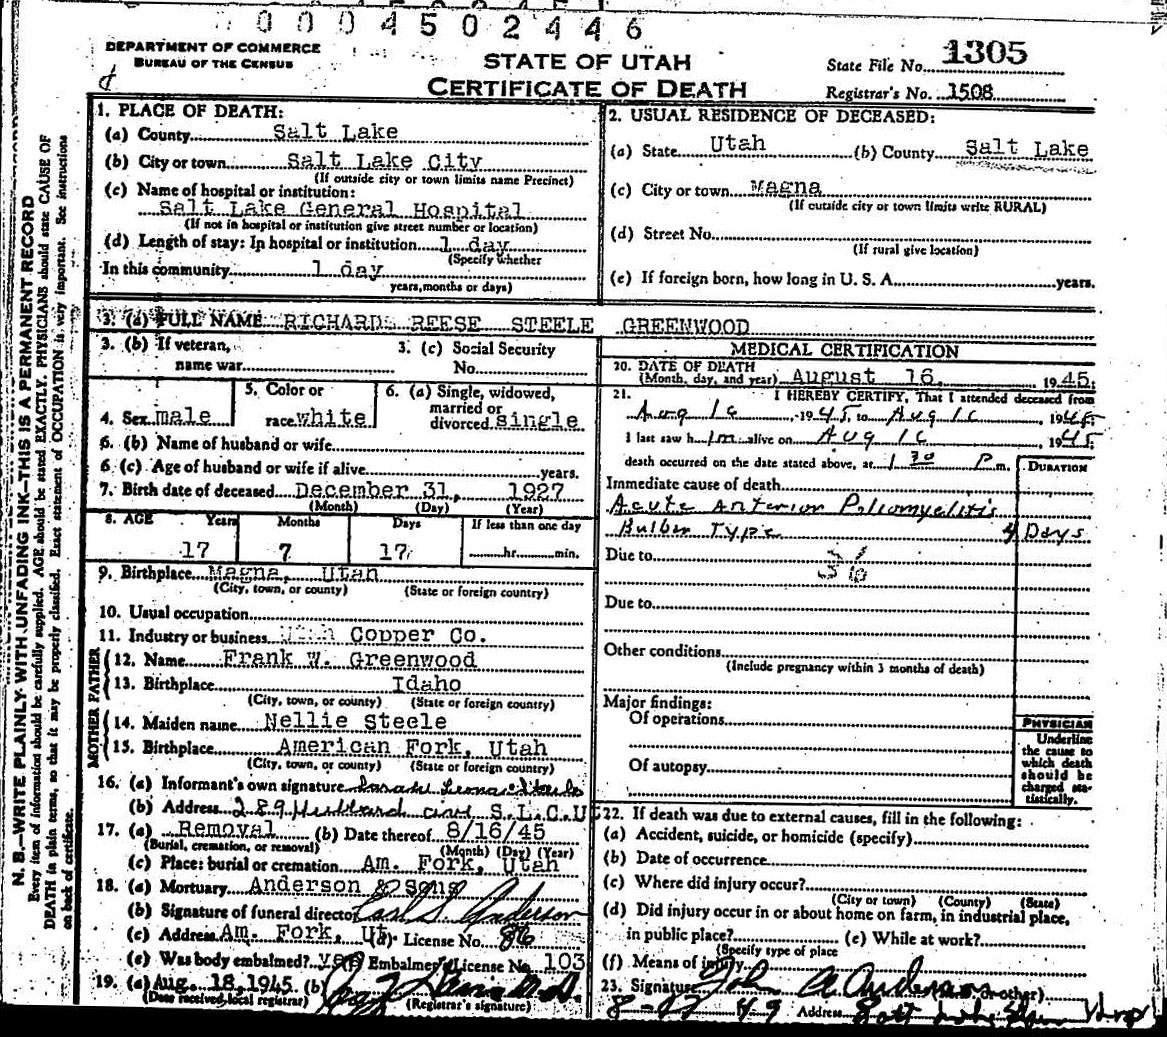 0 0 0 4 5 0 2 4 4 6
DEPARTMENT OF COMMERCE
BUREAU OF THE CENSUS
STATE OF UTAH
CERTIFICATE OF DEATH
State File No. 1305
Registrar's No. 1508
N. B.—WRITE PLAINLY WITH UNFADING INK—THIS IS A PERMANENT RECORD
Every item of information should be carefully supplied. AGE should be stated EXACTLY. PHYSICIANS should state CAUSE OF
DEATH in plain terms, so that it may be properly classified. Exact statement of OCCUPATION is very important. See instructions
on back of certificate.
1. PLACE OF DEATH:
(a) County Salt Lake
(b) City or town Salt Lake City
(If outside city or town limits name Precinct)
(c) Name of hospital or institution:
Salt Lake General Hospital
(If not in hospital or institution give street number or location)
(d) Length of stay: In hospital or institution 1 day
(Specify whether
In this community 1 day
years, months or days)
2. USUAL RESIDENCE OF DECEASED:
(a) State Utah (b) County Salt Lake
(c) City or town Magna
(If outside city or town limits write RURAL)
(d) Street No.
(If rural give location)
(e) If foreign born, how long in U. S. A. years.
3. (a) FULL NAME RICHARD REESE STEELE GREENWOOD
3. (b) If veteran, 3. (c) Social Security
name war No.
4. Sex male 5. Color or race white 6. (a) Single, widowed, married or divorced single
6. (b) Name of husband or wife
6. (c) Age of husband or wife if alive years.
7. Birth date of deceased December 31, 1927
(Month) (Day) (Year)
8. AGE Years Months Days If less than one day
17 7 17 hr. min.
9. Birthplace Magna, Utah
(City, town, or county) (State or foreign country)
10. Usual occupation
11. Industry or business Utah Copper Co.
FATHER
12. Name Frank W. Greenwood
13. Birthplace Idaho
(City, town, or county) (State or foreign country)
MOTHER
14. Maiden name Nellie Steele
15. Birthplace American Fork, Utah
(City, town, or county) (State or foreign country)
16. (a) Informant's own signature Sarah
(b) Address 289 S.L.C.U
17. (a) Removal (b) Date thereof 8/16/45
(Burial, cremation, or removal) (Month) (Day) (Year)
(c) Place: burial or cremation Am. Fork, Utah
18. (a) Mortuary Anderson & Sons
(b) Signature of funeral director Anderson
(c) Address Am. Fork, Ut. (d) License No. 86
(e) Was body embalmed? yes (f) Embalmer's License No. 103
19. (a) Aug. 18, 1945 (b)
(Date received local registrar) (Registrar's signature)
MEDICAL CERTIFICATION
20. DATE OF DEATH
(Month, day, and year) August 16, 1945
21. I HEREBY CERTIFY, That I attended deceased from
Aug 16, 1945, to Aug 16, 1945
I last saw him alive on Aug 16, 1945
death occurred on the date stated above, at 1 30 P m.
DURATION
Immediate cause of death
Acute Anterior Poliomyelitis
Bulbar Type 4 Days
Due to 36
Due to
Other conditions
(Include pregnancy within 3 months of death)
Major findings:
Of operations
Of autopsy
PHYSICIAN
Underline
the cause to
which death
should be
charged sta-
tistically.
22. If death was due to external causes, fill in the following:
(a) Accident, suicide, or homicide (specify)
(b) Date of occurrence
(c) Where did injury occur?
(City or town) (County) (State)
(d) Did injury occur in or about home on farm, in industrial place,
in public place? (e) While at work?
(Specify type of place
(f) Means of injury
23. Signature John A. Anderson
Address